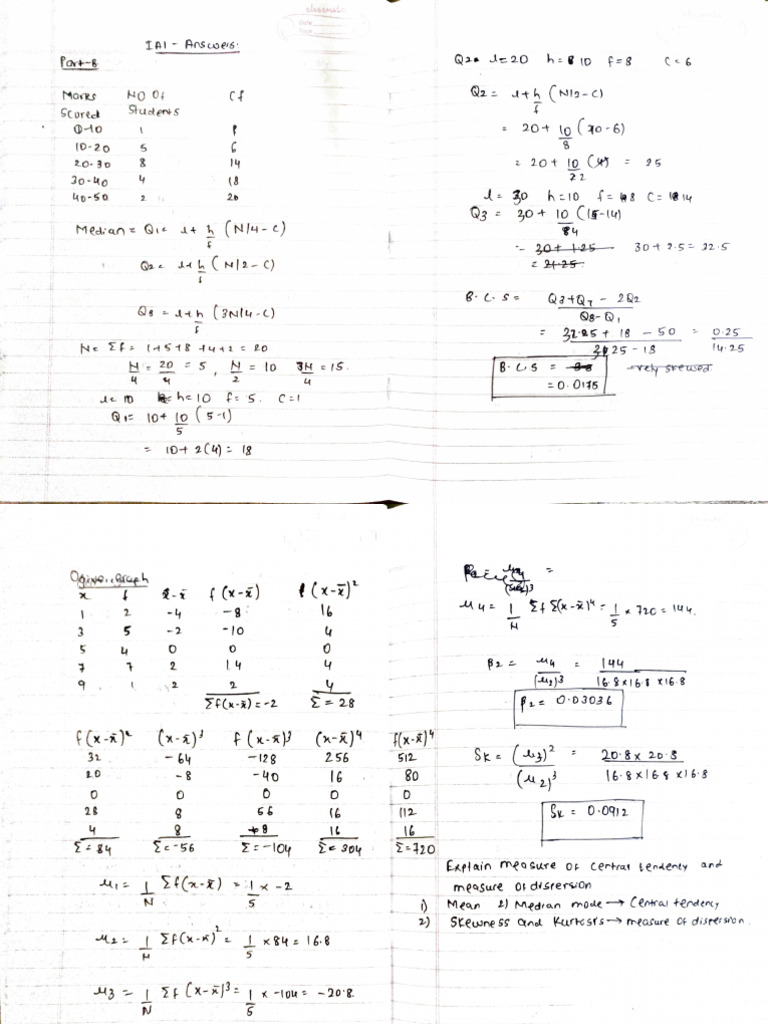 IA1 - Answers.
Part-B
Marks Scored
No of Students
Cf
0-10 1 1
10-20 5 6
20-30 8 14
30-40 4 18
40-50 2 20
Median = Q1 = l + h/f (N/4 - C)
Q2 = l + h/f (N/2 - C)
Q3 = l + h/f (3N/4 - C)
N = Σf = 1+5+8+4+2 = 20
N/4 = 20/4 = 5, N/2 = 10 3N/4 = 15.
l = 10 h = 10 f = 5. C = 1
Q1 = 10 + 10/5 (5-1)
= 10 + 2(4) = 18
l = 20 h = 10 f = 8 C = 6
Q2 = l + h/f (N/2 - C)
= 20 + 10/8 (10-6)
= 20 + 10/ (4) = 25
l = 30 h = 10 f = C = 14
Q3 = 30 + 10/4 (15-14)
30 + 1.25 30 + 2.5 = 32.5
= 21.25
B.C.S = Q3 + Q1 - 2Q2 / Q3 - Q1
= + 18 - 50 / 25 - 18 = 0.25 / 14.25
B.C.S =
= 0.0175
rely skewed
Ogive graph
x f x-x̄ f(x-x̄) (x-x̄)²
1 2 -4 -8 16
3 5 -2 -10 4
5 4 0 0 0
7 7 2 14 4
9 1 2 2 4
Σf(x-x̄) = -2 Σ = 28
f(x-x̄)² (x-x̄)³ f(x-x̄)³ (x-x̄)⁴ f(x-x̄)⁴
32 -64 -128 256 512
20 -8 -40 16 80
0 0 0 0 0
28 8 56 16 112
4 8 8 16 16
Σ = 84 Σ = -56 Σ = -104 Σ = 304 Σ = 720
μ1 = 1/N Σf(x-x̄) = 1/5 x -2
μ2 = 1/N Σf(x-x̄)² = 1/5 x 84 = 16.8
μ3 = 1/N Σf(x-x̄)³ = 1/5 x -104 = -20.8.
μ4 = 1/N Σf Σ(x-x̄)⁴ = 1/5 x 720 = 144.
β2 = μ4/(μ2)³ = 144 / 16.8 x 16.8 x 16.8
β2 = 0.03036
Sk = (μ3)²/(μ2)³ = 20.8 x 20.8 / 16.8 x 16.8 x 16.8
Sk = 0.0912
Explain measure of central tendency and
measure of dispersion
1) Mean 2) Median mode → Central tendency
2) Skewness and Kurtosis → measure of dispersion.